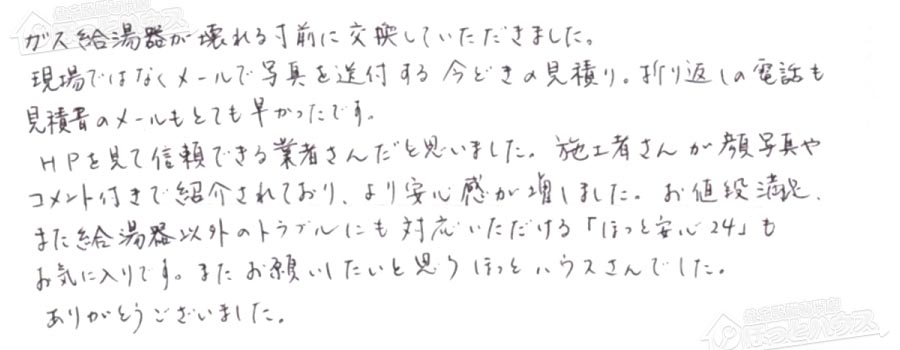 ガス給湯器が壊れる寸前に交換していただきました。
現場ではなくメールで写真を送付する今どきの見積り。折り返しの電話も
見積書のメールもとても早かったです。
HPを見て信頼できる業者さんだと思いました。施工者さんが顔写真や
コメント付きで紹介されており、より安心感が増しました。お値段満足、
また給湯器以外のトラブルにも対応いただける「ほっと安心24」も
お気に入りです。またお願いしたいと思うほっとハウスさんでした。
ありがとうございました。
ほっとハウス